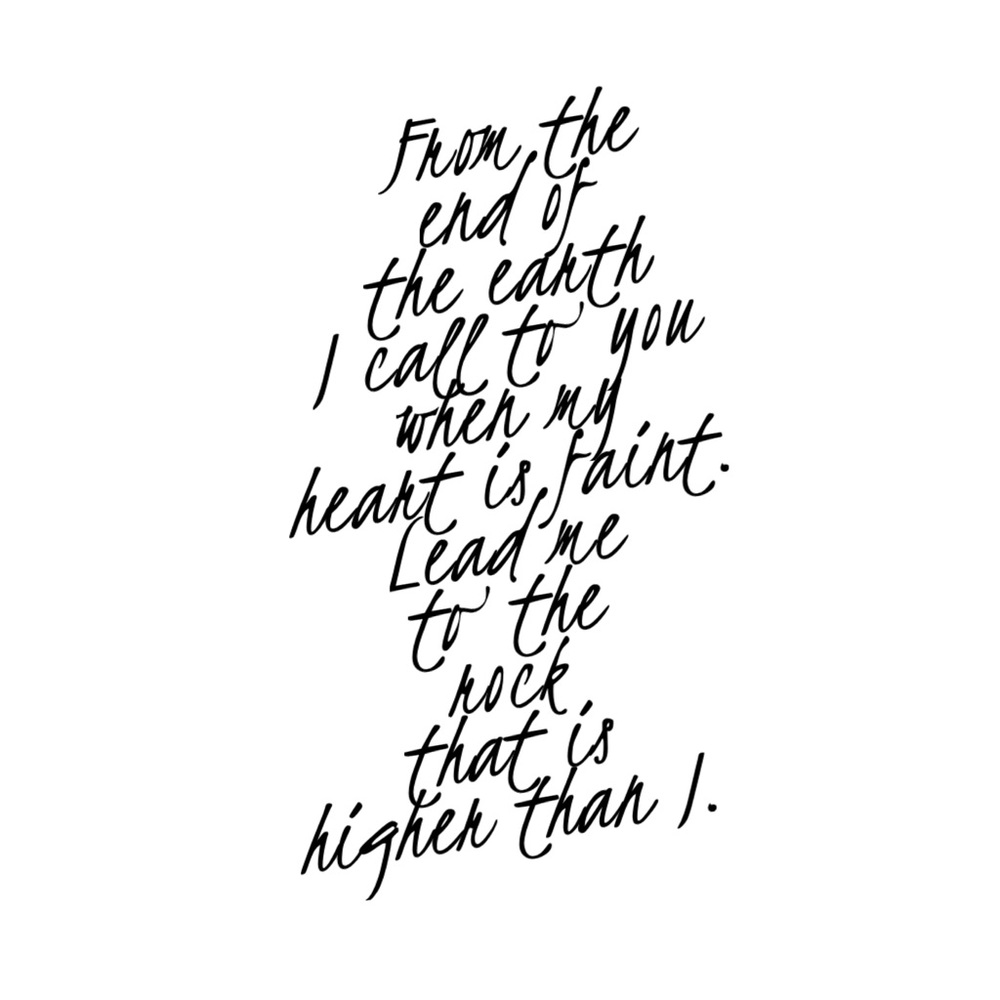 From the
end of
the earth
I call to you
when my
heart is faint.
Lead me
to the
rock
that is
higher than I.